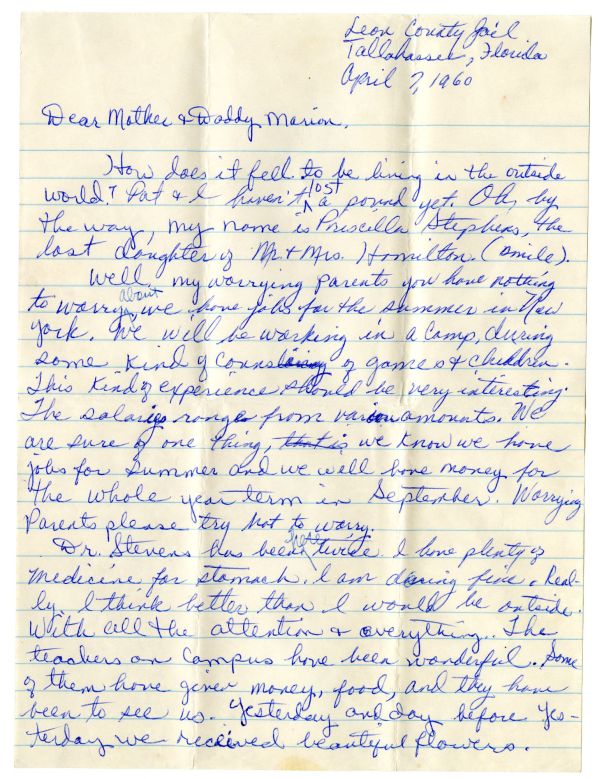 Leon County Jail
Tallahassee, Florida
April 7, 1960
Dear Mother & Daddy Marion,
How does it fell to be living in the outside
world? Pat & I haven't lost a pound yet. Oh, by
the way, my name is Priscilla Stephens, the
last daughter of Mr & Mrs. Hamilton. (smile).
Well my worrying parents you have nothing
to worry about we have jobs for the summer in New
York. We will be working in a camp, during
some kind of counsling of games & children.
This kind of experience should be very interesting.
The salaries ranges from various amounts. We
are sure of one thing, that is we know we have
jobs for summer and we will have money for
the whole year term in September. Worrying
Parents please try not to worry.
Dr. Stevens has been here twice. I have plenty of
medicine for stomach. I am doing fine. Real-
ly I think better than I would be outside.
With all the attention & everything. The
teachers on campus have been wonderful. Some
of them have given money, food, and they have
been to see us. Yesterday and day before yes-
terday we received beautiful flowers.